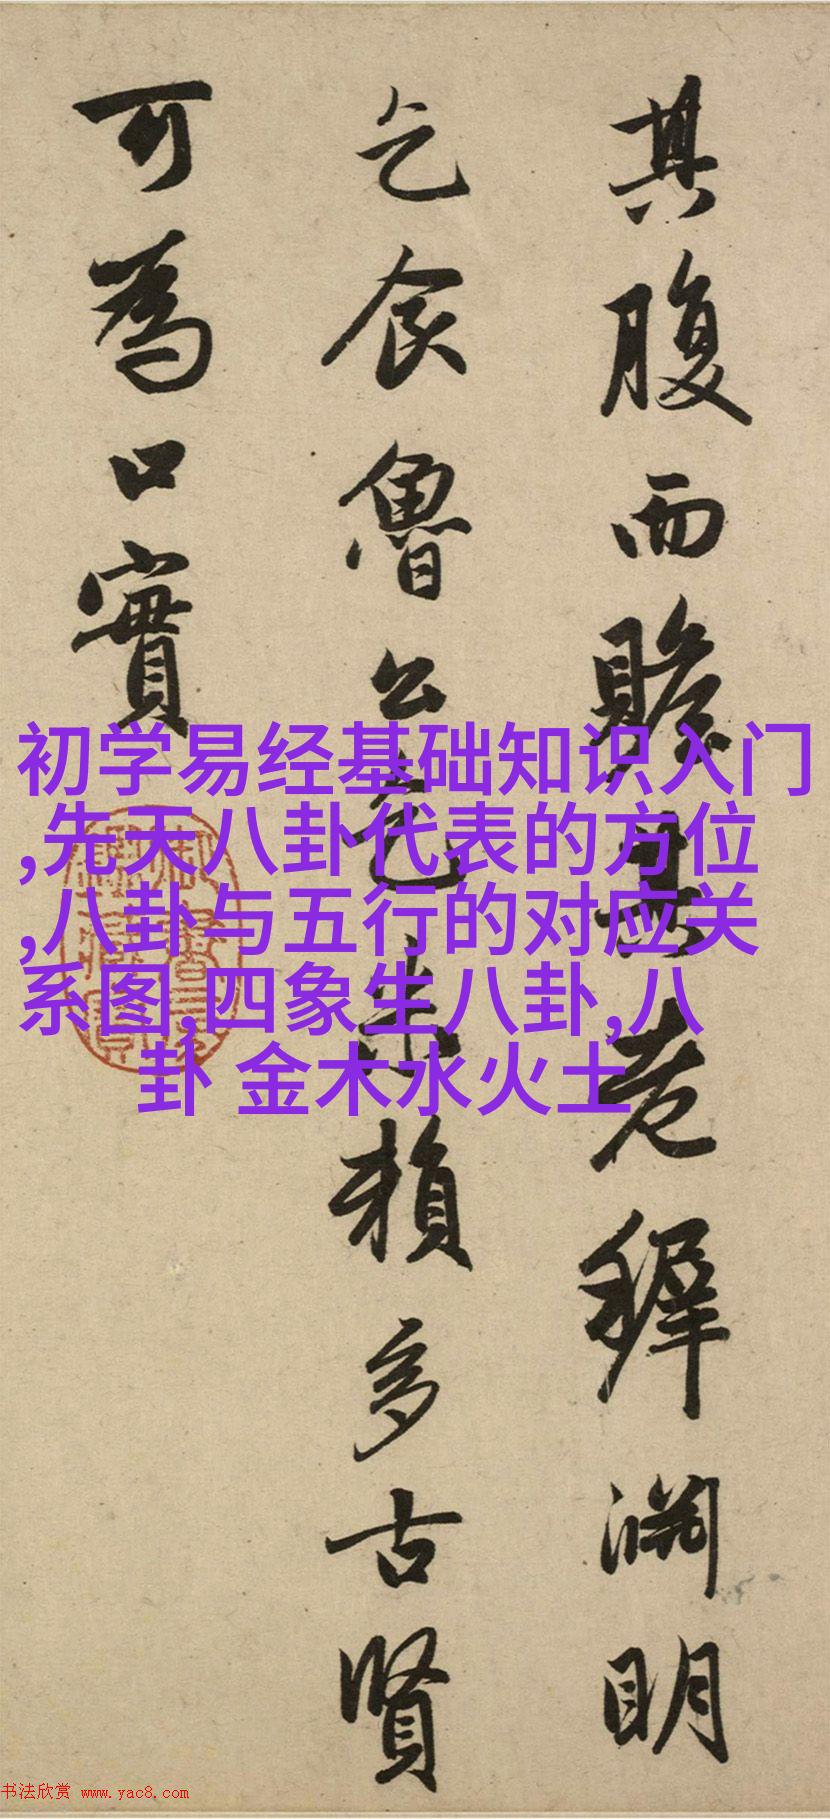 其腹而贍无老穉淵明
乞食魯公乞米賴多古賢
可為口實
初学易经基础知识入门
,先天八卦代表的方位
,八卦与五行的对应关
系图,四象生八卦,八
卦 金木水火土
书法欣赏 www.yac8.com